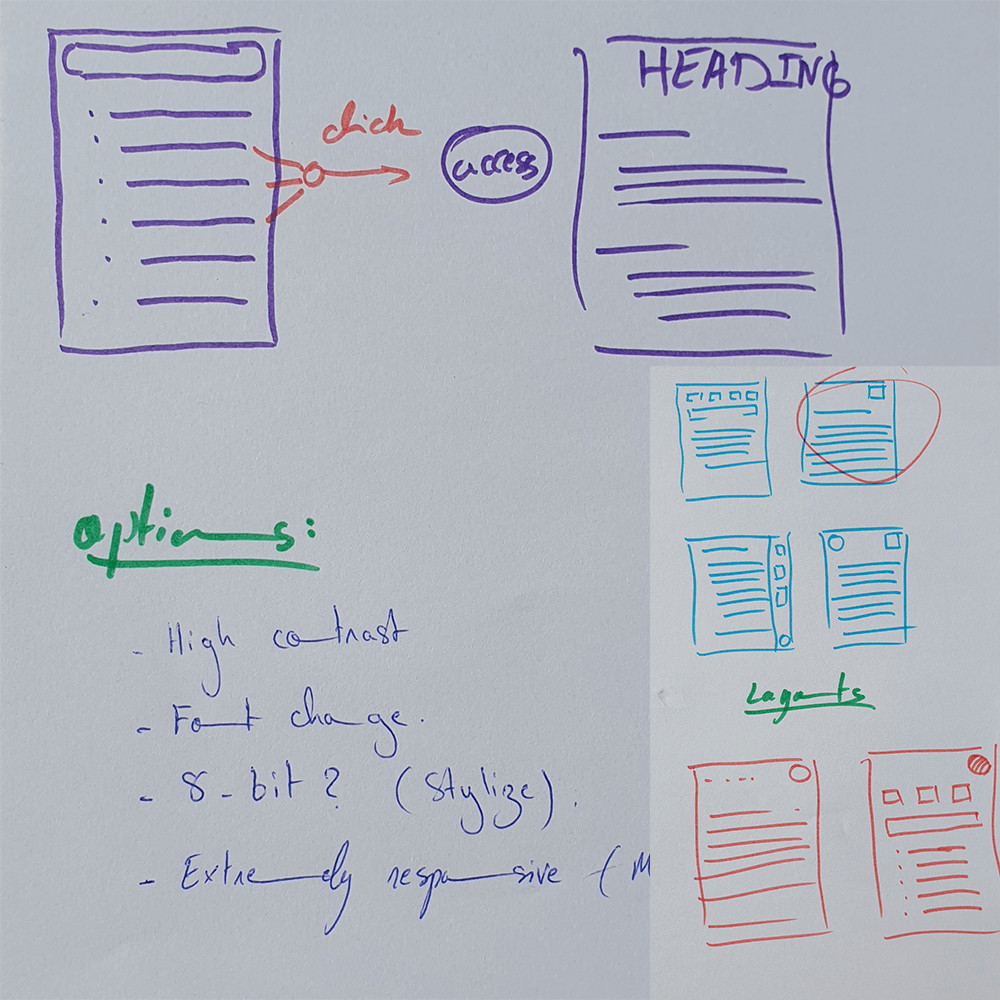 click
access
HEADING
Options:
- High contrast
- Font change.
- 8-bit? (Stylize).
- Extremely responsive (M
Layouts